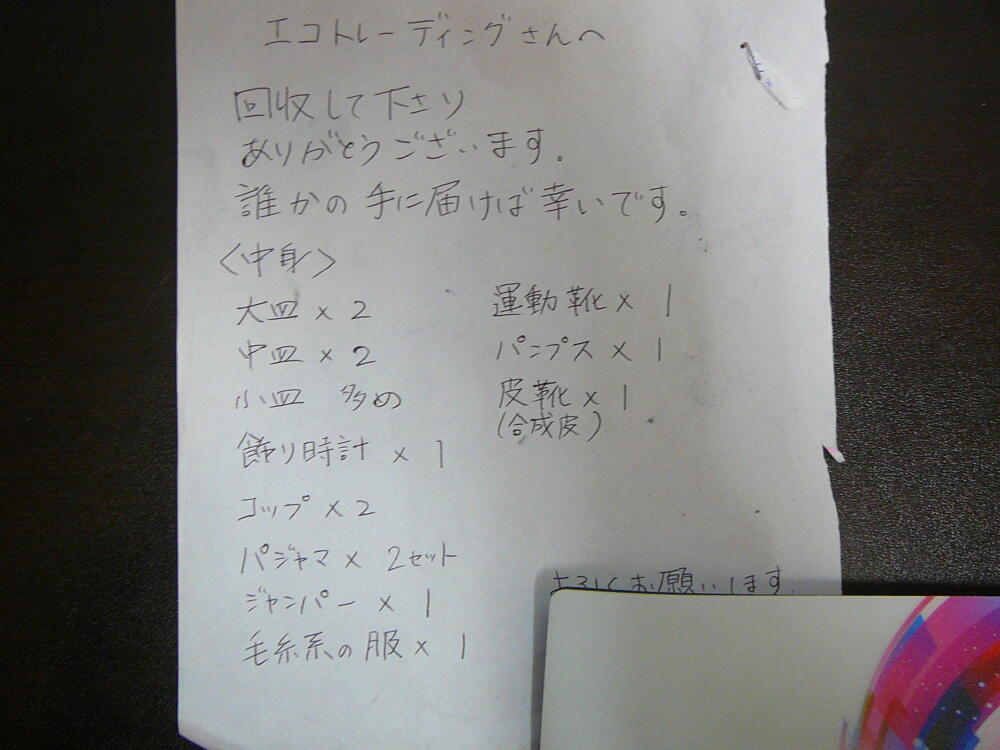 エコトレーディングさんへ
回収して下さり
ありがとうございます.
誰かの手に届けば幸いです。
〈中身〉
大皿 × 2
中皿 × 2
小皿 多め
飾り時計 × 1
コップ × 2
パジャマ × 2セット
ジャンパー × 1
毛糸系の服 × 1
運動靴 × 1
パンプス × 1
皮靴 × 1
(合成皮)
よろしくお願いします.